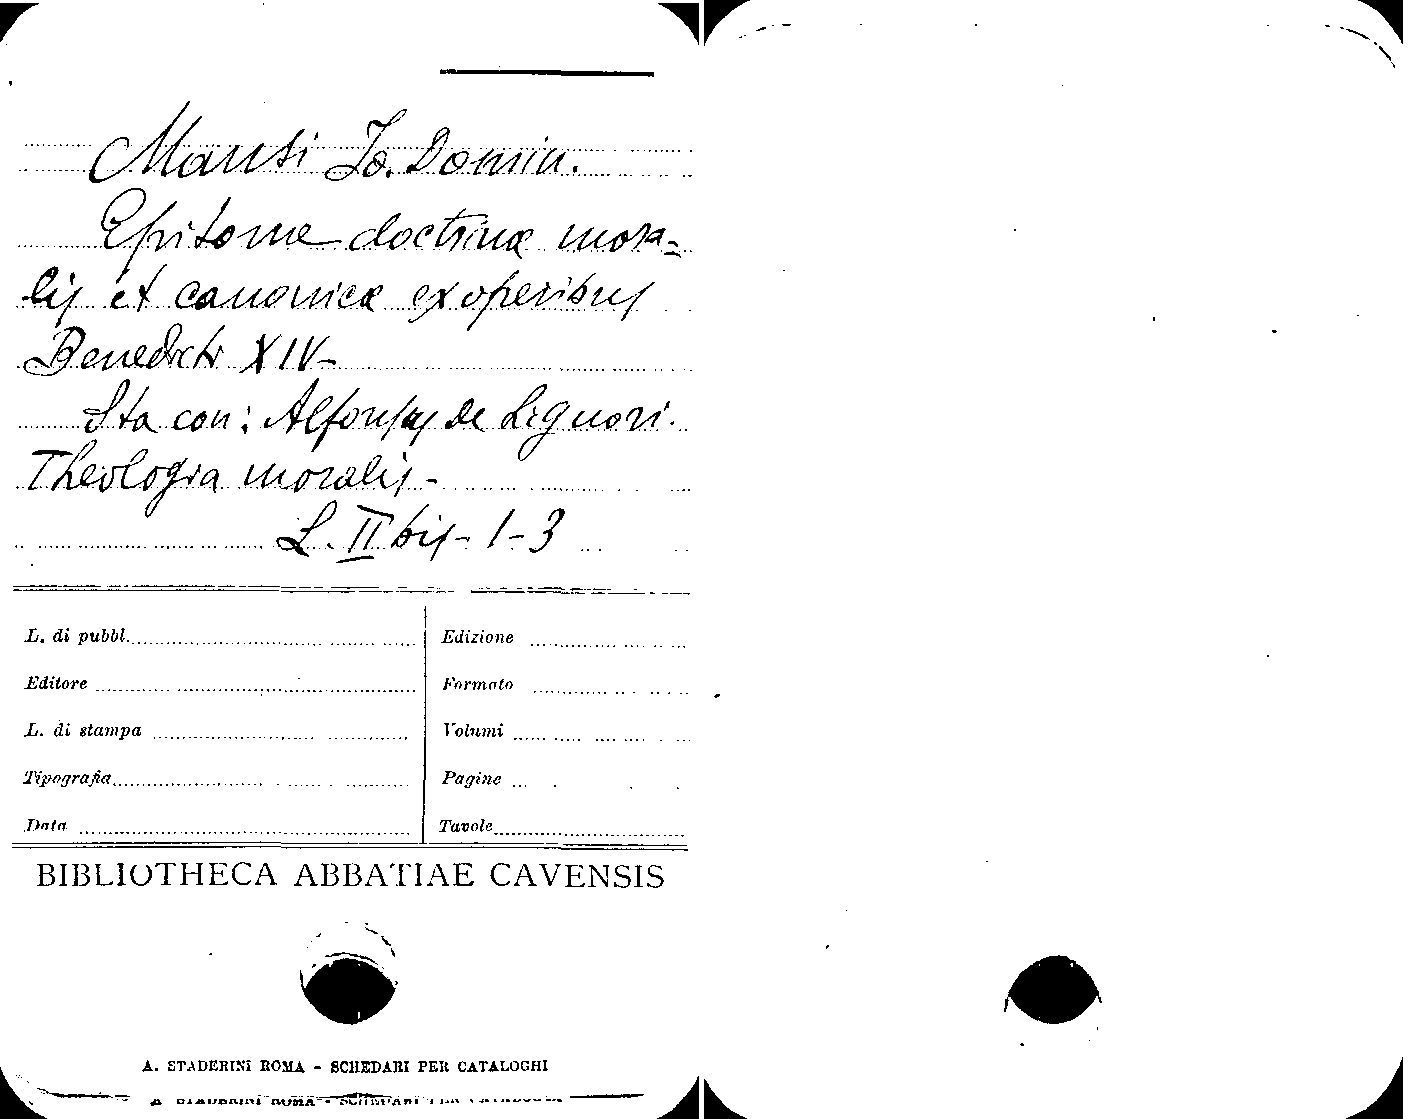 Mansi Jo. Domin.
Epitome doctrinæ mora-
lis et canonicæ ex operibus
Benedicti XIV-
Sta con: Alfonsus de Liguori.
Theologia moralis-
L. II bis- 1-3
L. di pubbl. Edizione
Editore Formato
L. di stampa Volumi
Tipografia Pagine
Data Tavole
BIBLIOTHECA ABBATIAE CAVENSIS
A. STADERINI ROMA - SCHEDARI PER CATALOGHI
A. STADERINI ROMA - SCHEDARI PER CATALOGHI